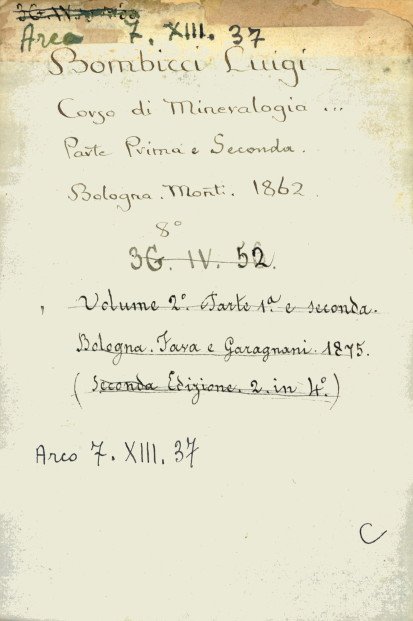 3G. IV
Arco 7. XIII. 37
Bombicci Luigi –
Corso di Mineralogia ...
Parte Prima e Seconda.
Bologna. Monti. 1862.
8°
3G. IV. 52.
Volume 2° Parte 1ª e seconda.
Bologna. Fava e Garagnani. 1875.
(Seconda Edizione. 2. in 4°.)
Arco 7. XIII. 37
C